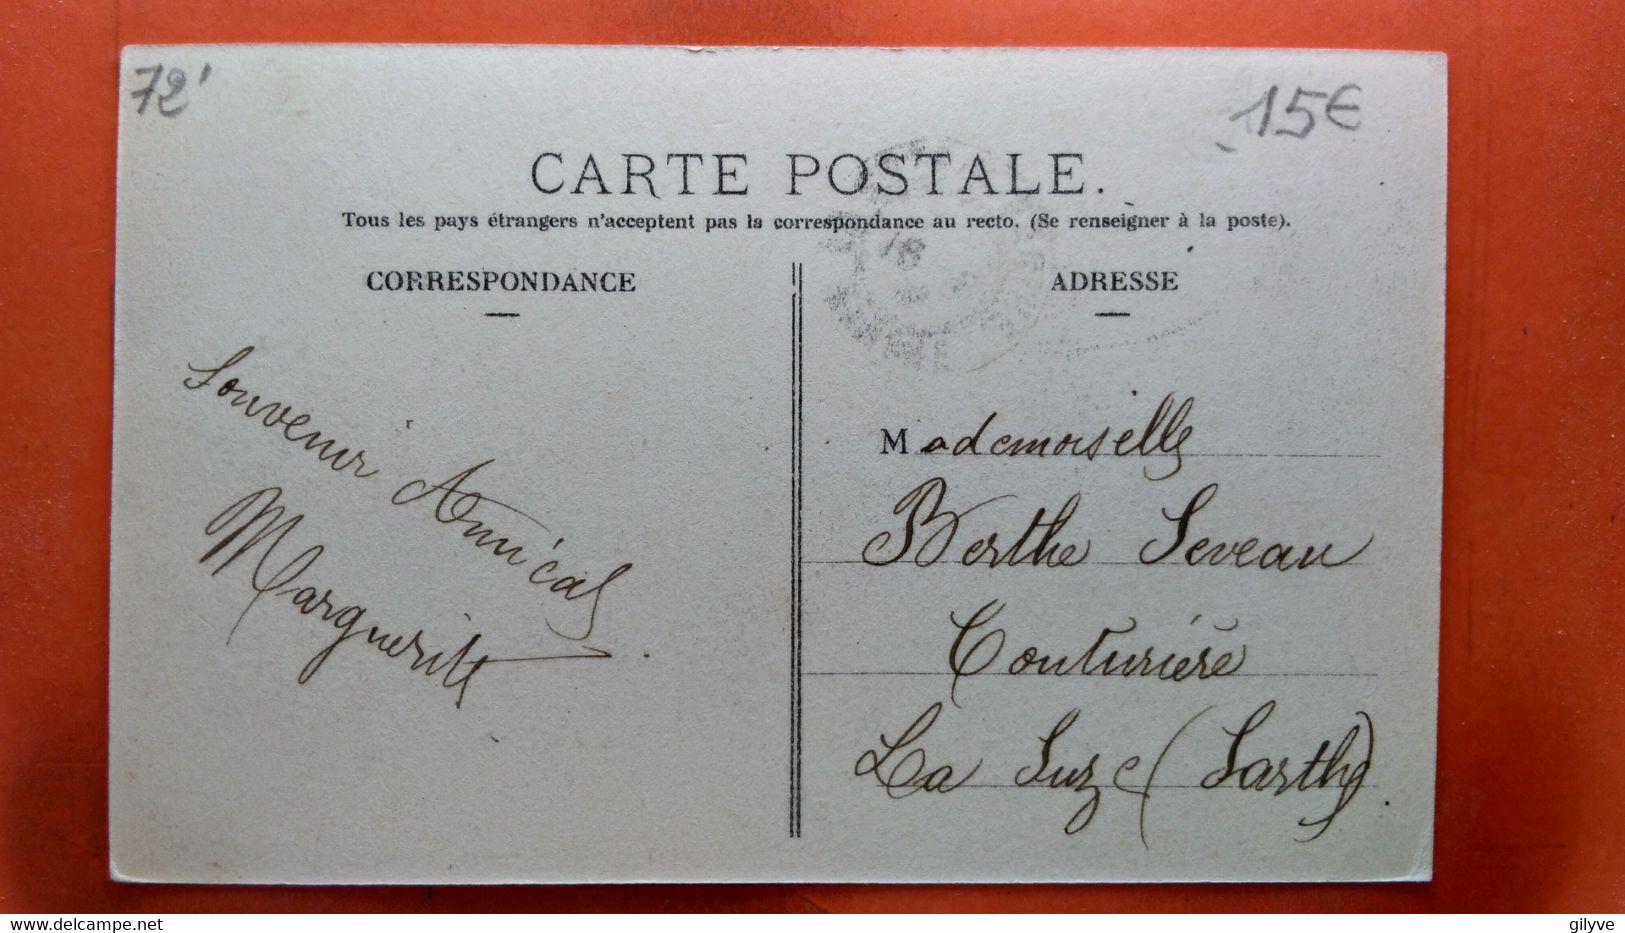 72'
15€
CARTE POSTALE.
Tous les pays étrangers n'acceptent pas la correspondance au recto. (Se renseigner à la poste).
CORRESPONDANCE
Souvenir Amical
Marguerite
ADRESSE
Mademoiselle
Berthe Seveau
Couturière
La Suze (Sarthe).
Delcampe.net
gilyve